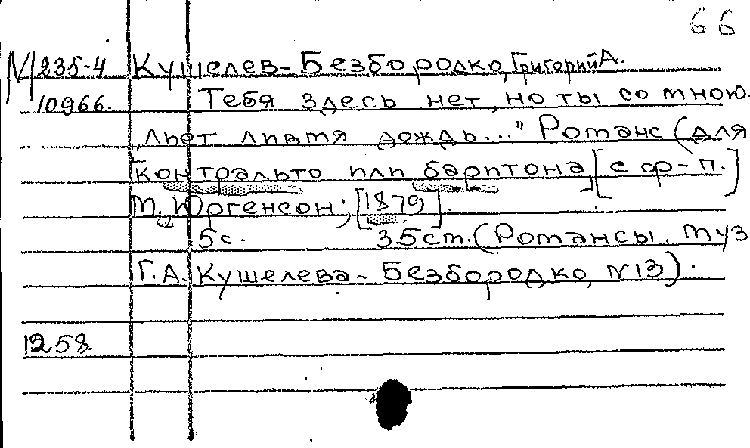 66
N 235-4 Кушелев-Безбородко, Григорий А.
10966. Тебя здесь нет, но ты со мною.
льет дождь..." Романс (для
контральто или баритона, [с ф-п.]
М, Юргенсон; [1879].
5 с. 35 ст. (Романсы. Муз
Г. А. Кушелева-Безбородко, N 13).
1258